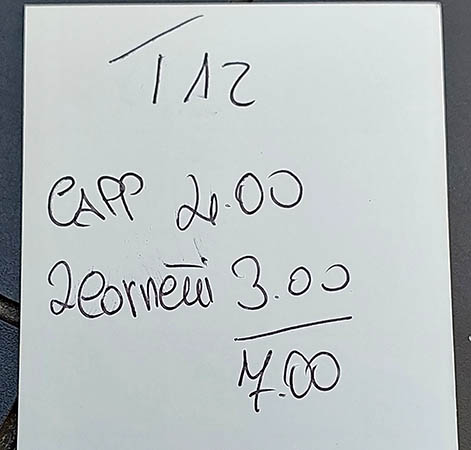 T12
CAPP 4.00
2 Cornetti 3.00
7.00